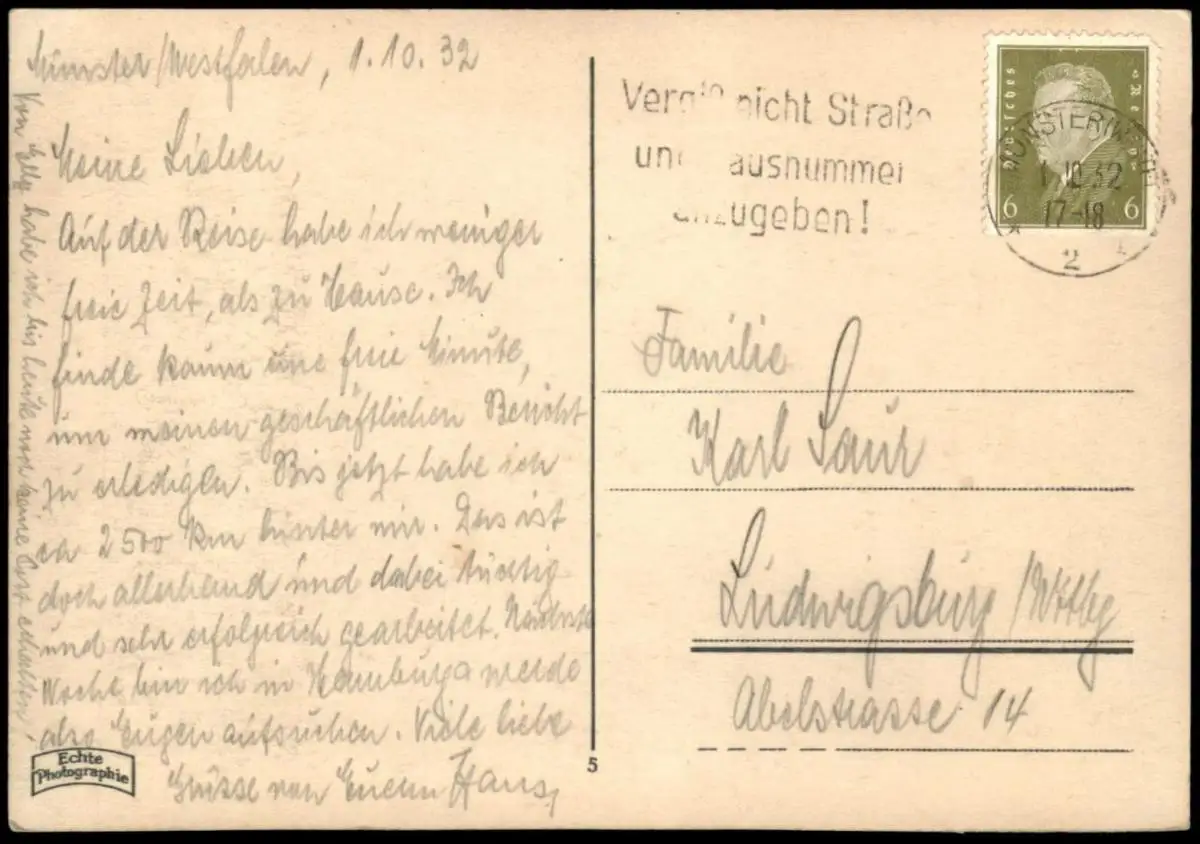 Münster/Westfalen, 1.10.32
Meine Lieben,
Auf der Reise habe ich weniger
freie Zeit, als zu Hause. Ich
finde kaum eine freie Minute,
um meinen geschäftlichen Bericht
zu erledigen. Bis jetzt habe ich
ca 2500 km hinter mir. Das ist
doch allerhand und dabei tüchtig
und sehr erfolgreich gearbeitet. Nächste
Woche bin ich in Hamburg werde
also Eugen aufsuchen. Viele liebe
Grüsse von Eurem Hans,
Von Elly habe ich bis heute noch keine Post erhalten.
Echte
Photographie
5
Vergiß nicht Straße
und Hausnummer
anzugeben!
Deutsches Reich
6 6
MÜNSTER (WESTF)
1.10.32
17-18
* 2 *
Familie
Karl Saur
Ludwigsburg/Wttbg
Abelstrasse 14